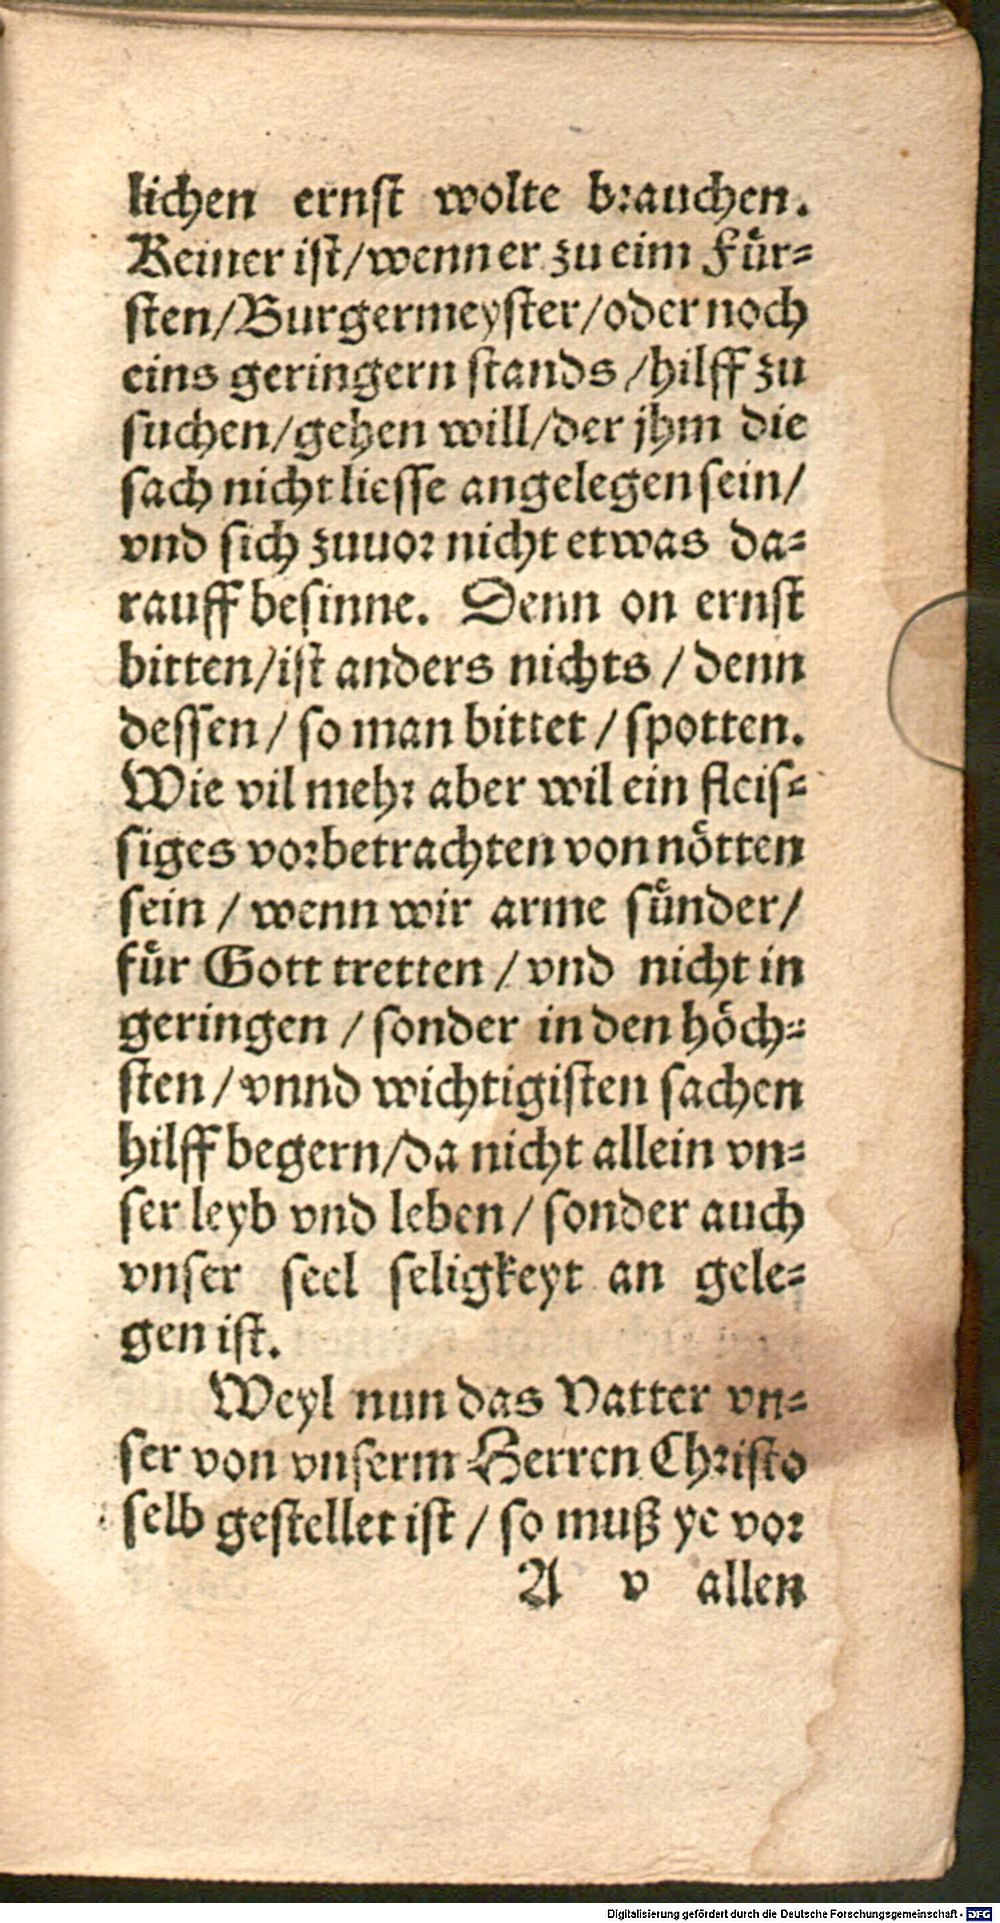 lichen ernst wolte brauchen.
Keiner ist/wenn er zu eim Fürsten-
sten/Burgermeyster/oder noch
eins geringern stands/hilff zu
suchen/gehen will/der jhm die
sach nicht liesse angelegen sein/
vnd sich zuuor nicht etwas da-
rauff besinne. Denn on ernst
bitten/ist anders nichts/denn
dessen/so man bittet/spotten.
Wie vil mehr aber wil ein fleis-
siges vorbetrachten von nötten
sein/wenn wir arme sünder/
für Gott tretten/vnd nicht in
geringen/sonder in den höch-
sten/vnnd wichtigisten sachen
hilff begern/da nicht allein vn-
ser leyb vnd leben/sonder auch
vnser seel seligkeyt an gele-
gen ist.
Weyl nun das Vatter vn-
ser von vnserm Herren Christo
selb gestellet ist/so muß ye vor
A v allen
Digitalisierung gefördert durch die Deutsche Forschungsgemeinschaft - DFG